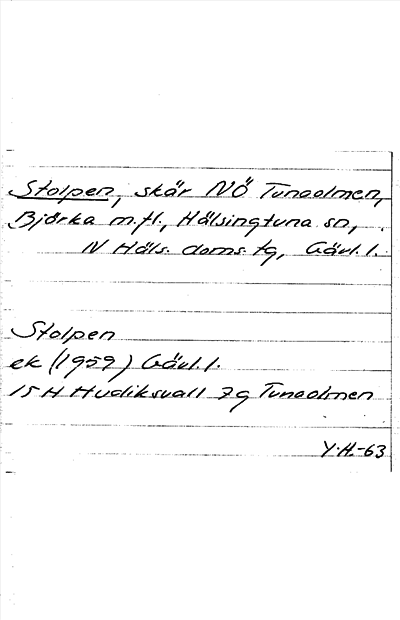 Stolpen, skär NÖ Tunaolmen,
Björka m.fl., Hälsingtuna sn,
N Häls. doms. tg, Gävl. l.
Stolpen
ek (1959) Gävl. l.
15 H Hudiksvall 7g Tunaolmen
Y.H.-63